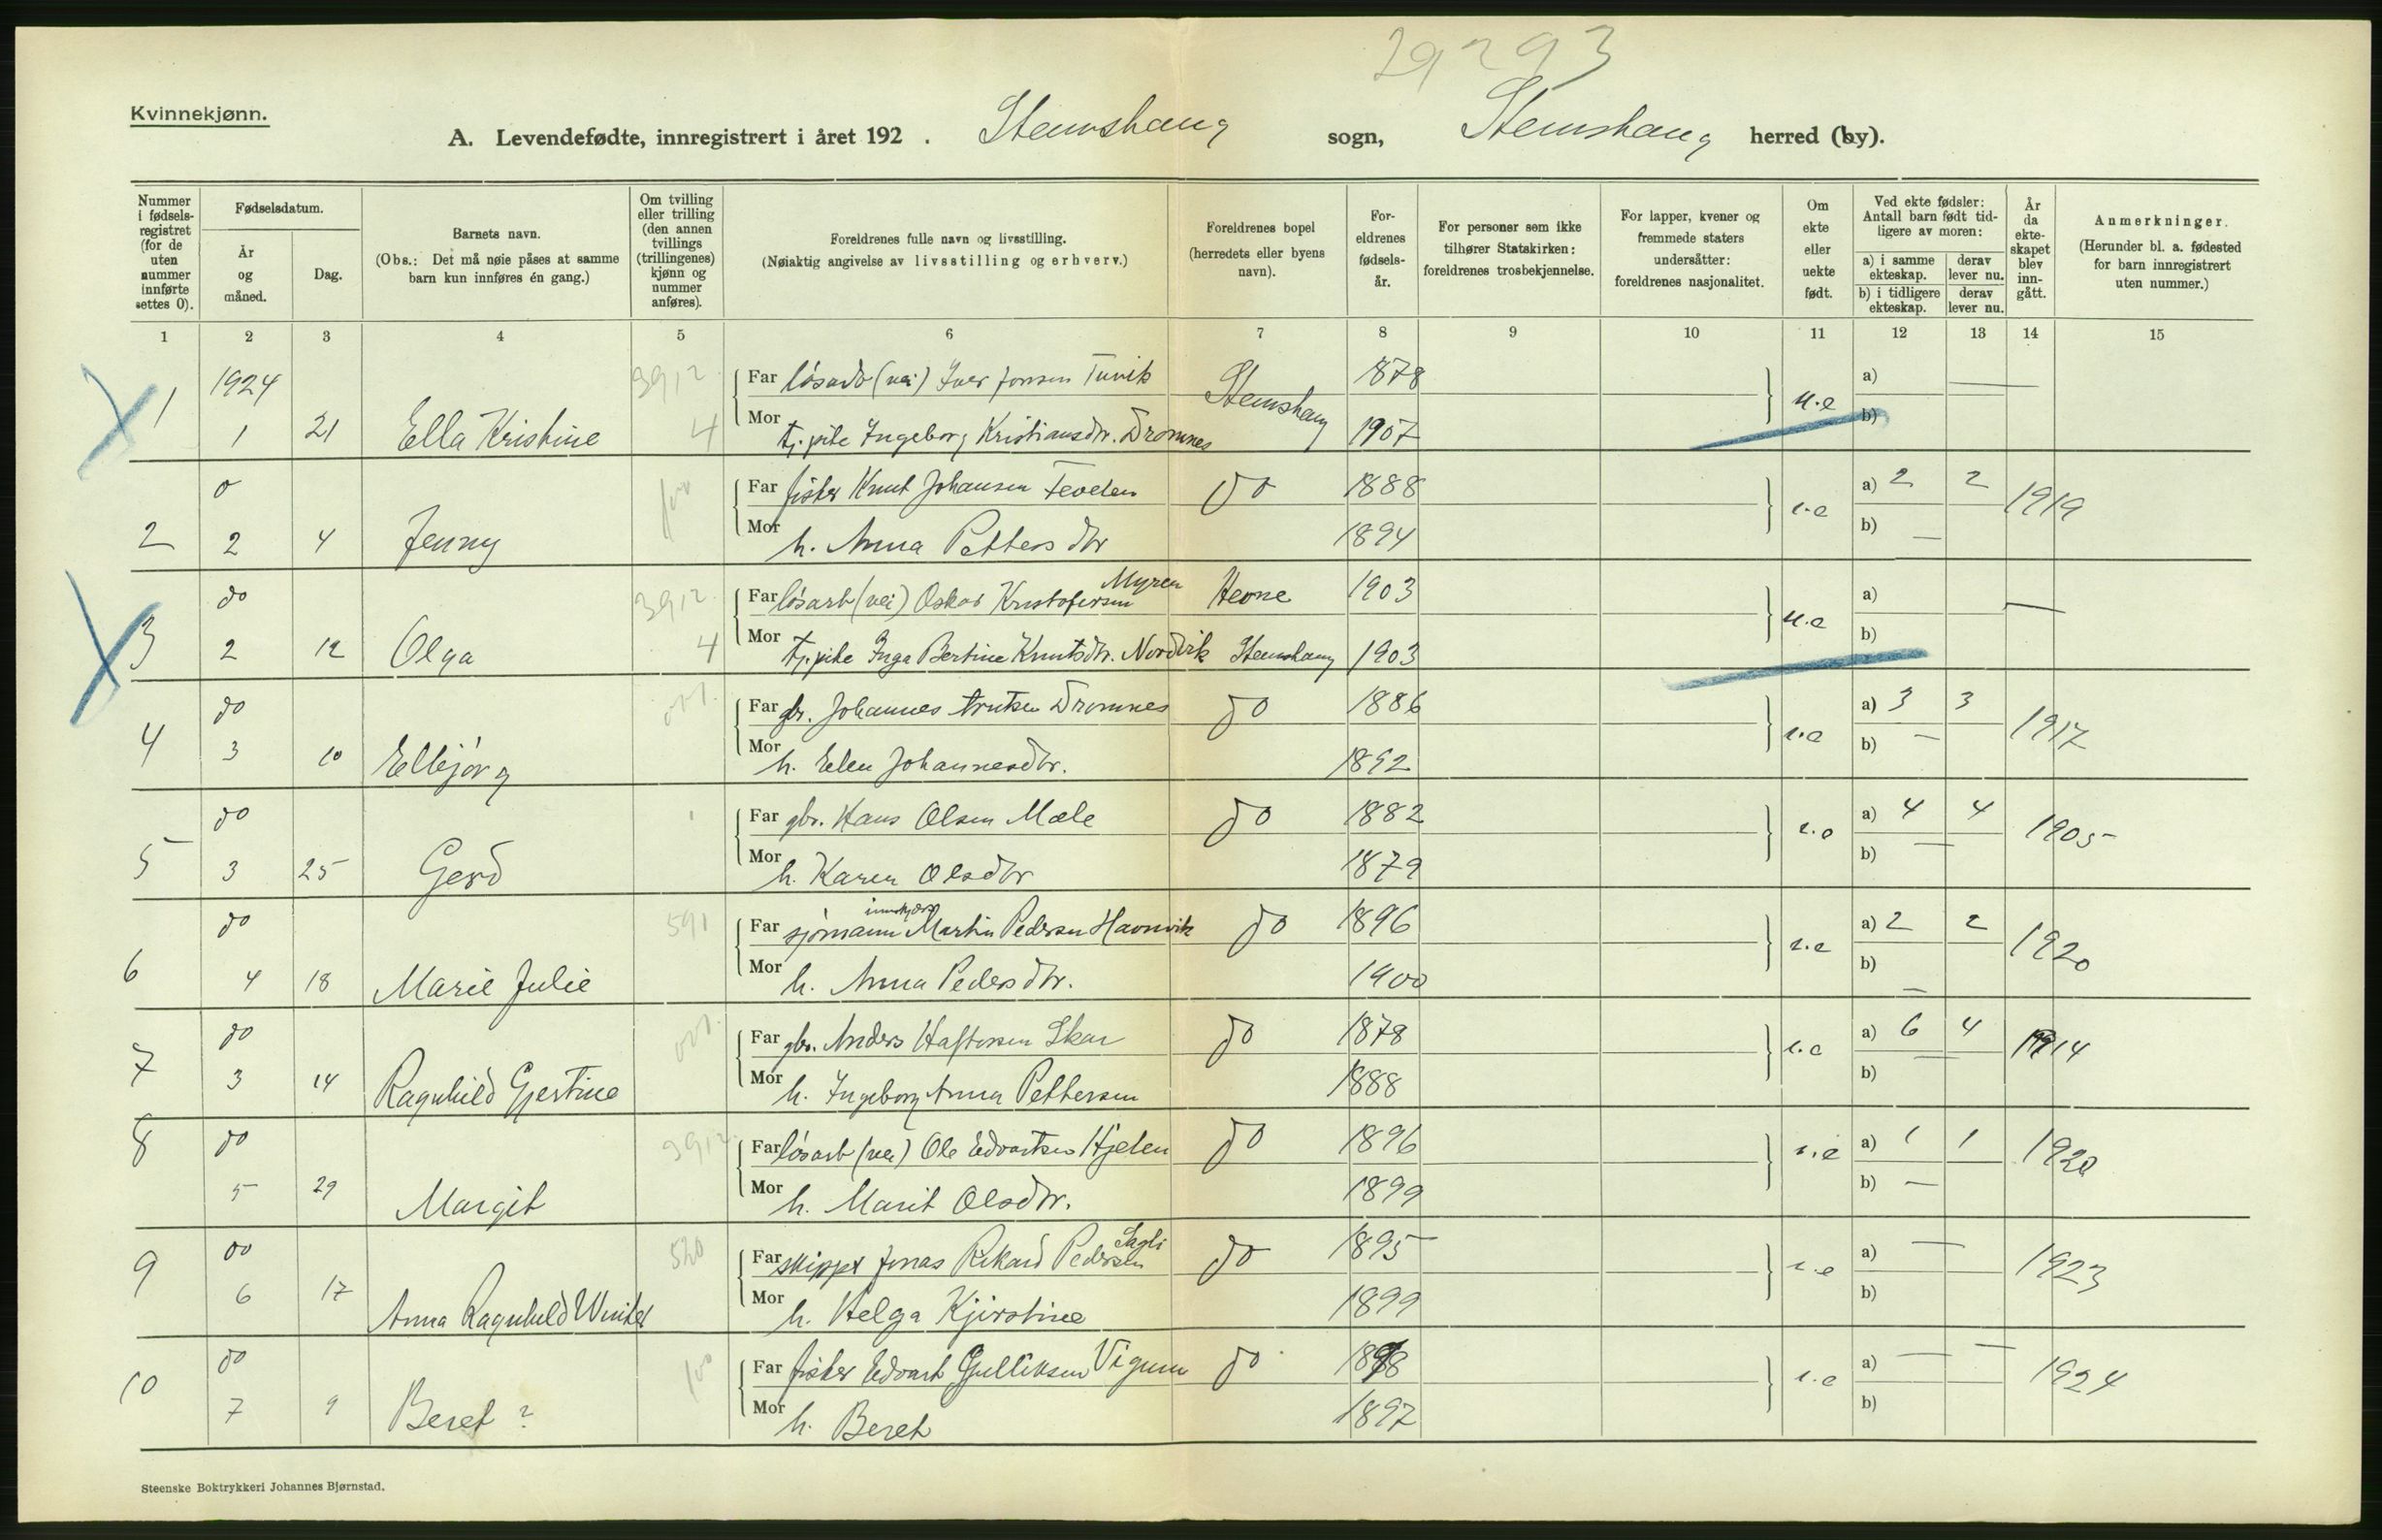 29293
Kvinnekjønn.
A. Levendefødte, innregistrert i året 192 . Stemshaug sogn, Stemshaug herred (by).
Nummer i fødselsregistret (for de uten nummer innførte settes 0).
Fødselsdatum.
År og måned.
Dag.
Barnets navn.
(Obs.: Det må nøie påses at samme barn kun innføres én gang.)
Om tvilling eller trilling (den annen tvillings (trillingenes) kjønn og nummer anføres).
Foreldrenes fulle navn og livsstilling.
(Nøiaktig angivelse av livsstilling og erhverv.)
Foreldrenes bopel (herredets eller byens navn).
Foreldrenes fødselsår.
For personer som ikke tilhører Statskirken: foreldrenes trosbekjennelse.
For lapper, kvener og fremmede staters undersåtter: foreldrenes nasjonalitet.
Om ekte eller uekte født.
Ved ekte fødsler: Antall barn født tidligere av moren:
a) i samme ekteskap. derav lever nu.
b) i tidligere ekteskap. derav lever nu.
År da ekteskapet blev inngått.
Anmerkninger.
(Herunder bl. a. fødested for barn innregistrert uten nummer.)
1 2 3 4 5 6 7 8 9 10 11 12 13 14 15
1924 3912 Far løsarb (vei) Iver Jonsen Tuvik Stemshaug 1878 a) —
1 1 21 Ella Kristine 4 Mor tj.pike Ingeborg Kristiansdtr. Dromnes 1907 u.e b)
do 100 Far fisker Knut Johansen 1888 a) 2 2 1919
2 2 4 Jenny Mor h. Anna Pettersdtr 1894 e.e b) —
do 3912 Far løsarb (vei) Oskar Kristofersen Myren Hevne 1903 a) —
3 2 12 Olga 4 Mor tj.pike Inga Bertine Knutsdtr. Nordvik Stemshaug 1903 u.e b)
do 001. Far gbr. Johannes Dromnes do 1886 a) 3 3 1917
4 3 10 Elbjørg Mor h. Elen Johannesdtr. 1892 e.e b) —
do Far gbr. Hans Olsen Mæle do 1882 a) 4 4 1905
5 3 25 Gerd Mor h. Karen Olsdtr 1879 e.e b) —
do 591 Far sjømann Martin Pedersen Havnvik do 1896 a) 2 2 1920
6 4 18 Marie Julie Mor h. Anna Pedersdtr. 1900 e.e b) —
do 001. Far gbr. Anders Haftorsen Skar do 1878 a) 6 4 1914
7 3 14 Ragnhild Gjertine Mor h. Ingeborg Anna Pettersen 1888 e.e b)
8 do 3912. Far løsarb (vei) Ole Edvartsen Hjelen do 1896 a) 1 1 1920
5 29 Margit Mor h. Marit Olsdtr. 1899 e.e b) —
do 520 Far skipper Jonas Rikard Pedersen Sagli do 1895 a) — 1923
9 6 17 Anna Ragnhild Winter Mor h. Helga Kjirstine 1899 e.e b)
do 100 Far fisker Edvart Gulliksen Vigum do 1898 a) — — 1924
10 7 9 Beret ? Mor h. Beret 1897 e.e b)
Steenske Boktrykkeri Johannes Bjørnstad.